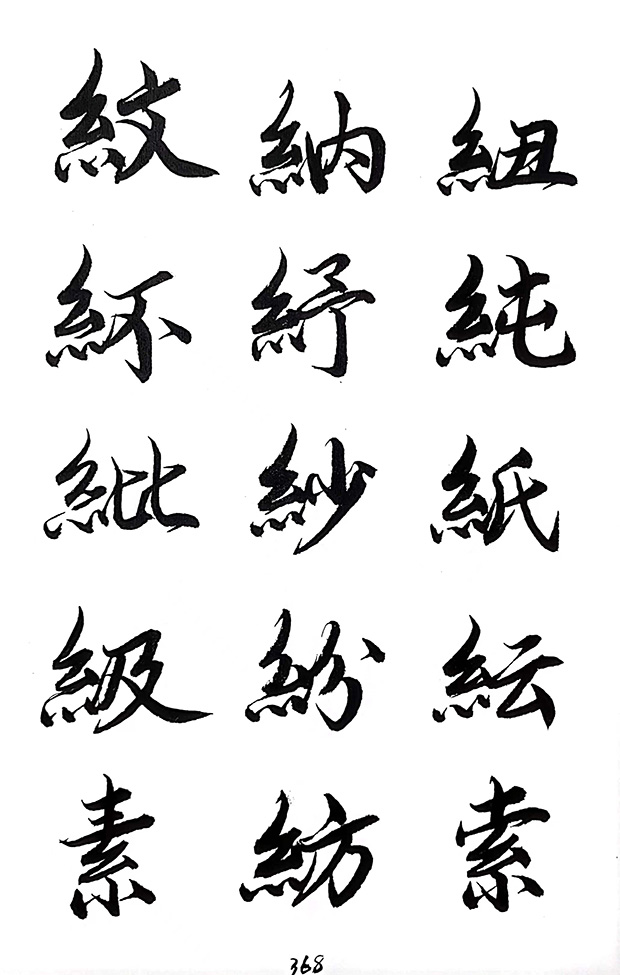 紋納紐
紑紓純
紕紗紙
級紛紜
素紡索
368